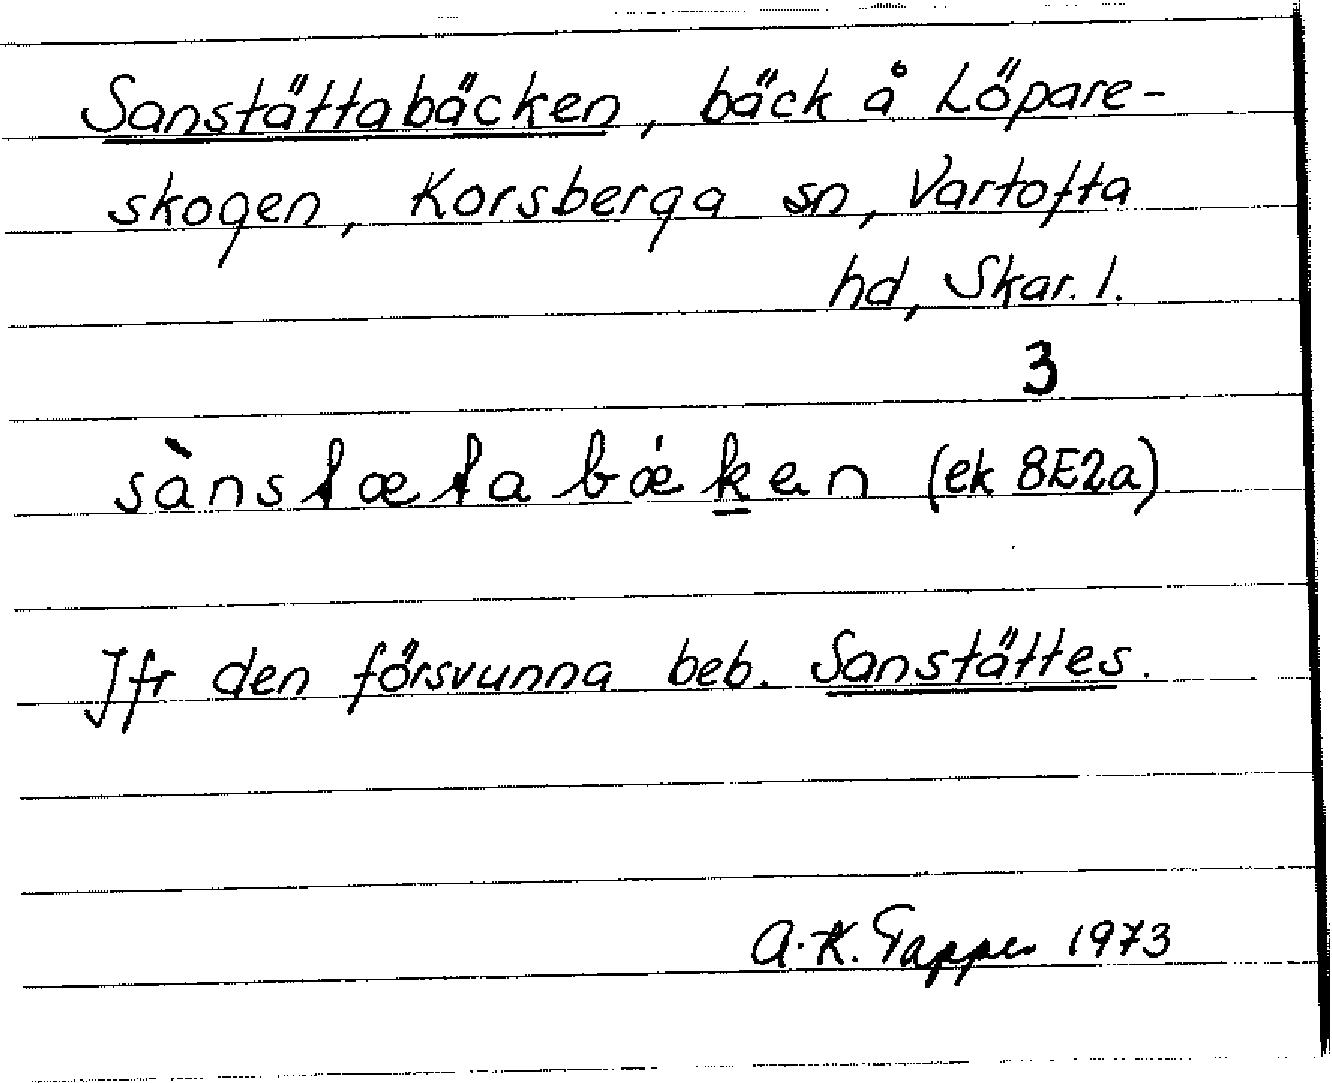 Sanstättabäcken, bäck å Löpare-
skogen, Korsberga sn, Vartofta
hd, Skar. l.
3
sànstætabǽken (ek 8E2a)
Jfr den försvunna beb. Sanstättes.
A.-K. Tapper 1973